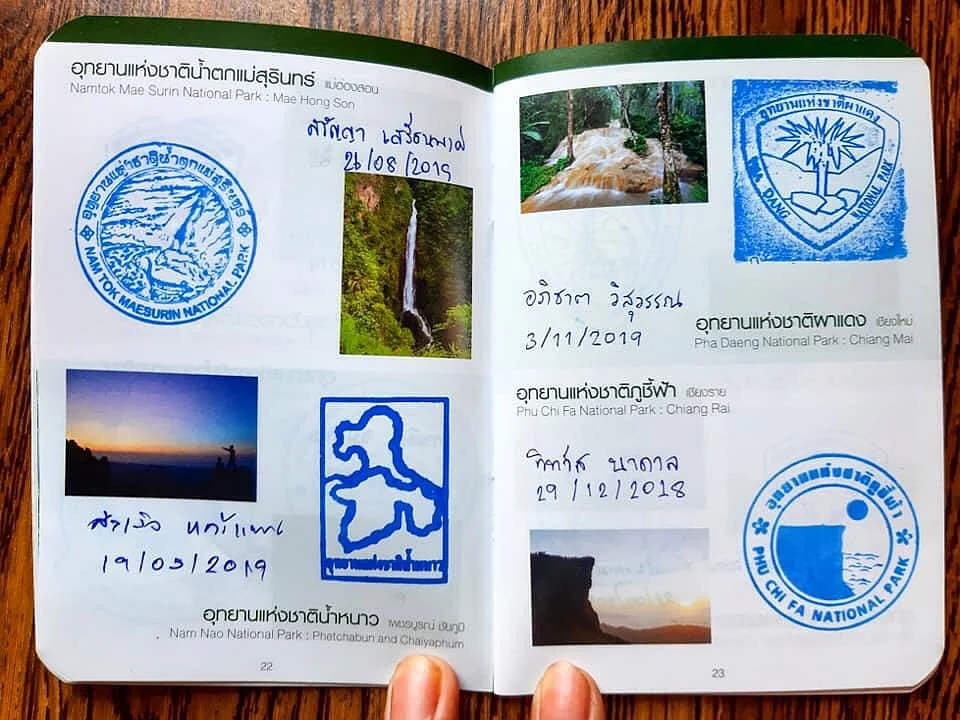 อุทยานแห่งชาติน้ำตกแม่สุรินทร์ แม่ฮ่องสอน
Namtok Mae Surin National Park : Mae Hong Son
/08/2019
อุทยานแห่งชาติน้ำตกแม่สุรินทร์
NAMTOK MAESURIN NATIONAL PARK
19/05/2019
อุทยานแห่งชาติน้ำหนาว
อุทยานแห่งชาติน้ำหนาว เพชรบูรณ์ ชัยภูมิ
Nam Nao National Park : Phetchabun and Chaiyaphum
22
อุทยานแห่งชาติผาแดง
DANG
NATIONAL PARK
อภิชาต วิสุวรรณ
3/11/2019
อุทยานแห่งชาติผาแดง เชียงใหม่
Pha Daeng National Park : Chiang Mai
อุทยานแห่งชาติภูชี้ฟ้า เชียงราย
Phu Chi Fa National Park : Chiang Rai
29/12/2018
อุทยานแห่งชาติภูชี้ฟ้า
PHU CHI FA NATIONAL PARK
23